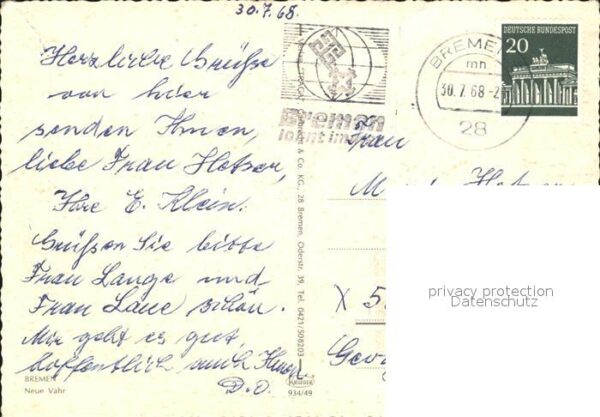 30.7.68.
Herzliche Grüße
von hier
senden Ihnen,
liebe Frau Hetzer,
Ihre E. Klein.
Grüßen Sie bitte
Frau Lange und
Frau Laue schön.
Mir geht es gut,
hoffentlich auch Ihnen
D.O.
BREMEN
Neue Vahr
& Co. KG., 28 Bremen, Oderstr. 39, Tel. 0421/508203
KRÜGER
934/49
Bremen
lohnt im
BREMEN
mn
30.7.68-2
28
DEUTSCHE BUNDESPOST
20
Frau
X 5
privacy protection
Datenschutz